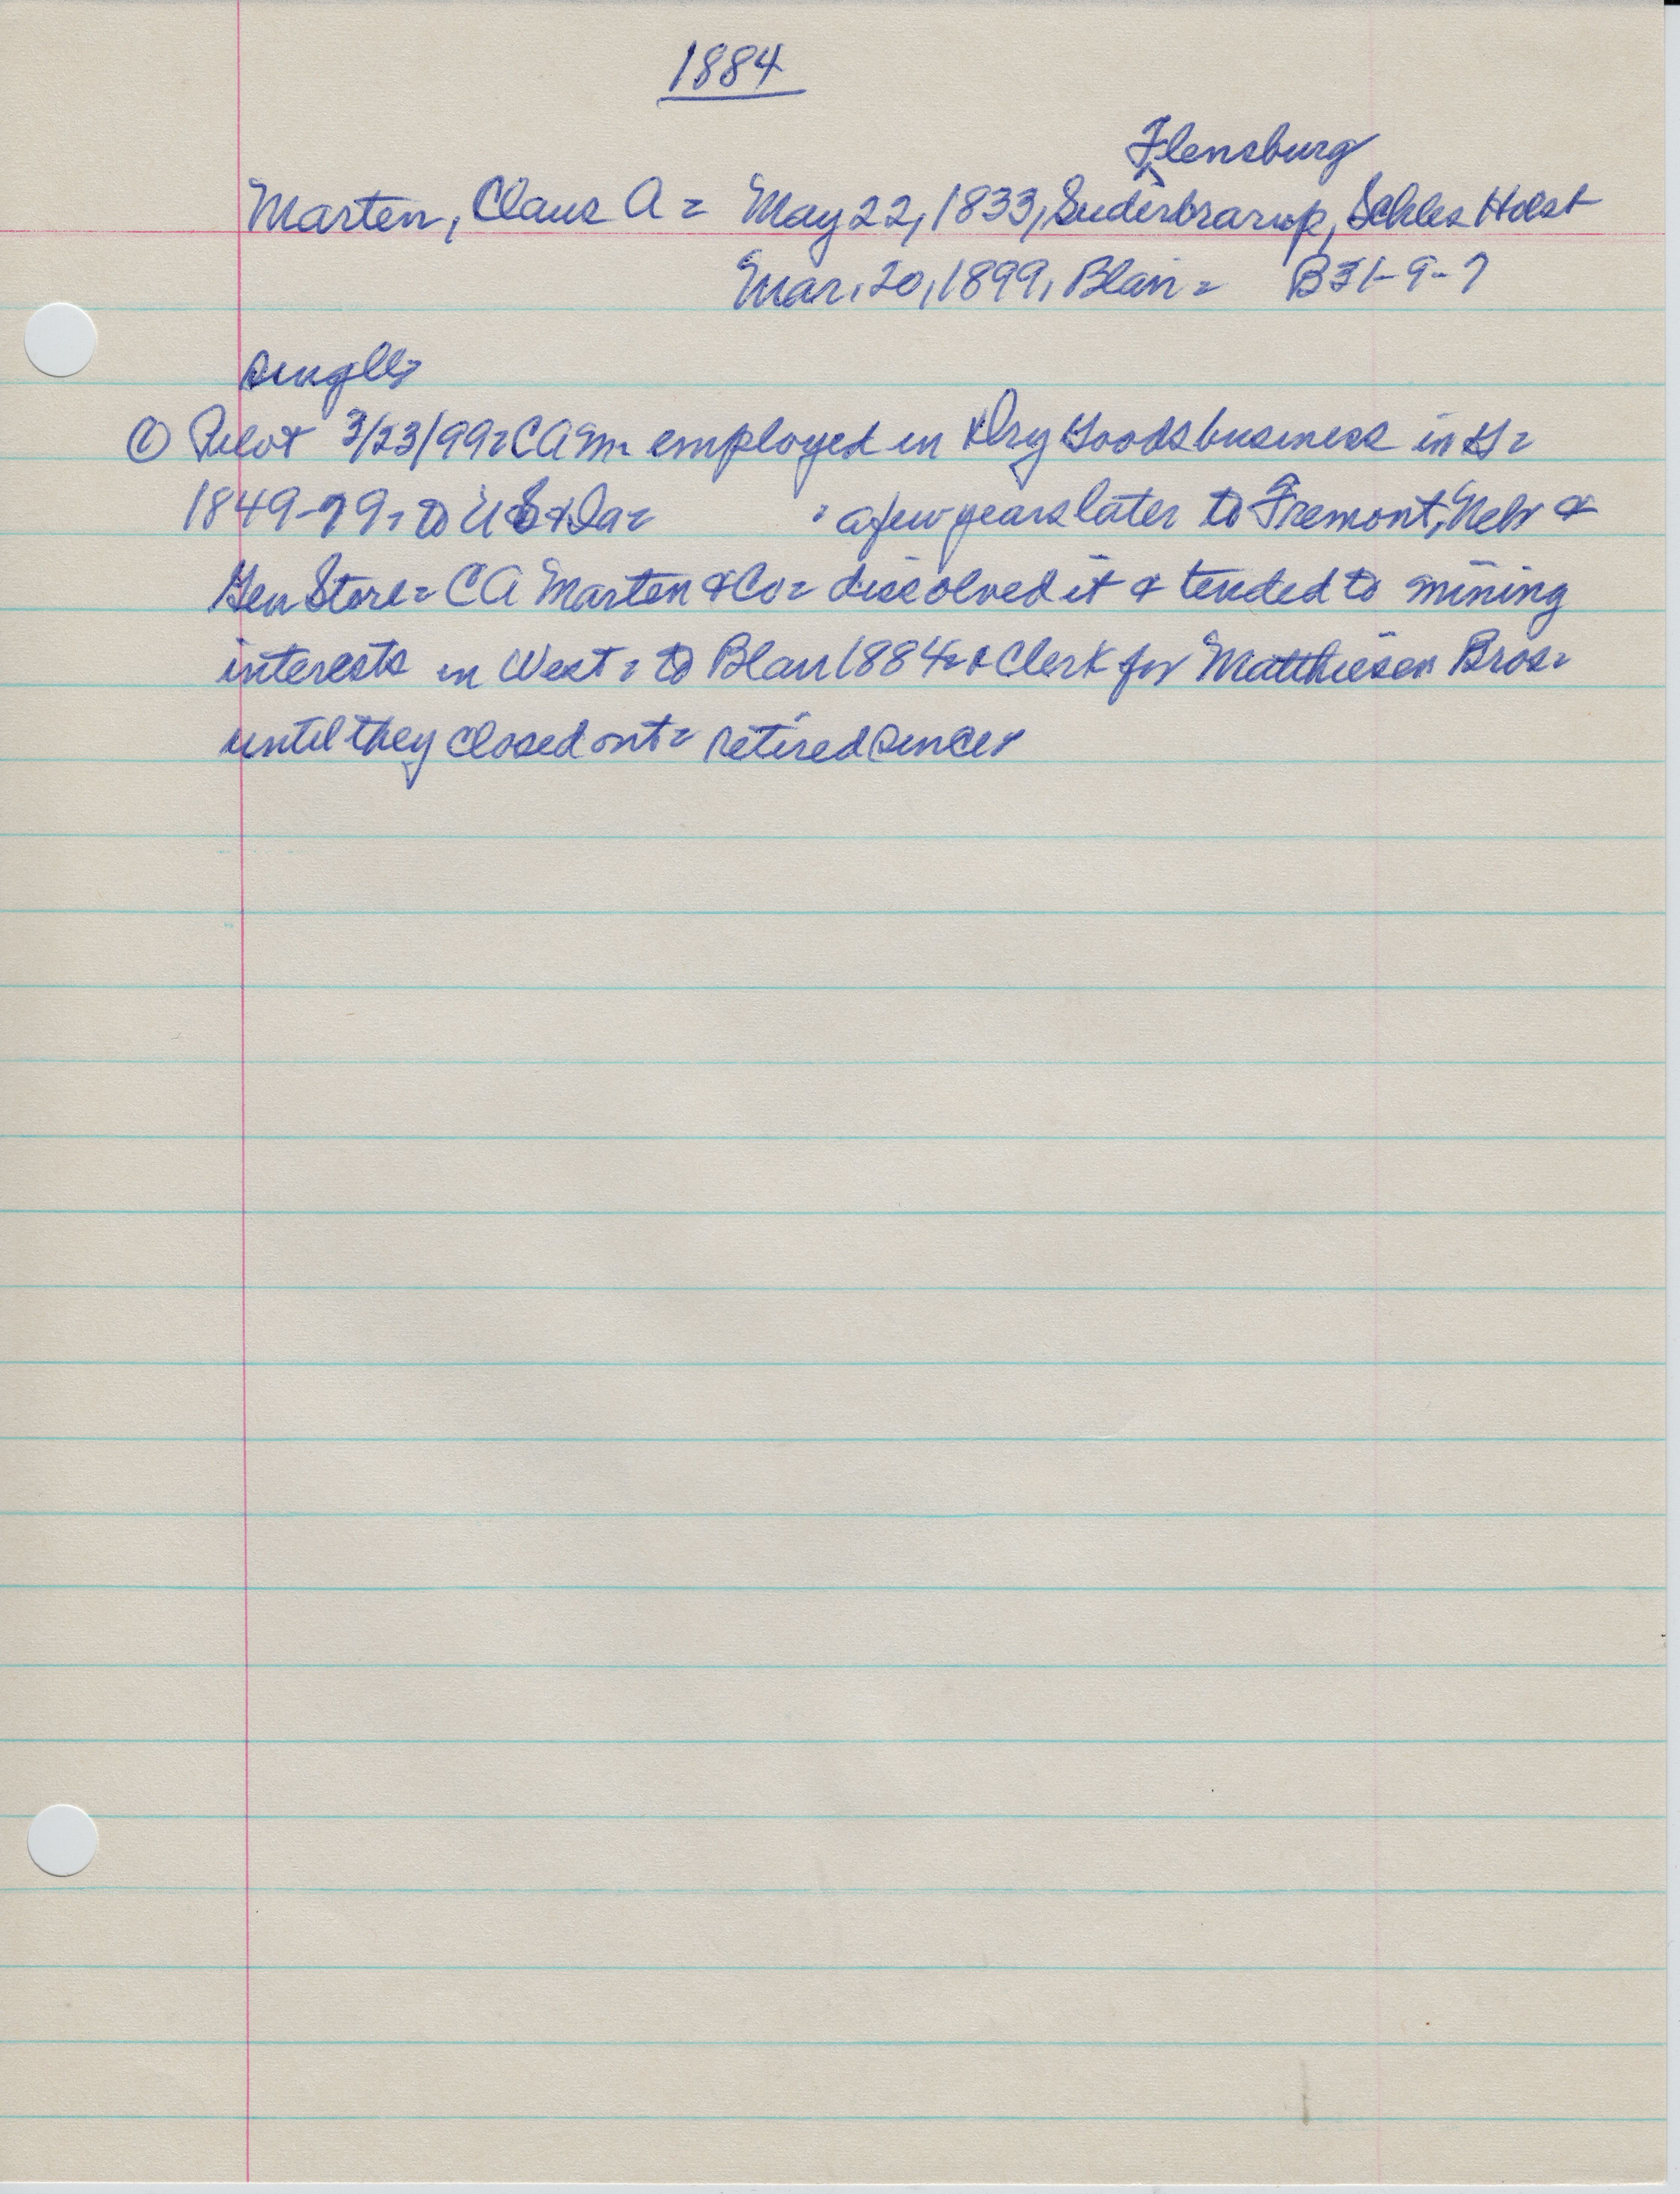 1884
Flensburg
Marten, Claus A = May 22, 1833, Suderbrarup, Schles Holst
Mar. 20, 1899, Blair = B31-9-7
single
① Pilot 3/23/99 = CAM = employed in Dry Goods business in G =
1849-79 = to US & Ia = = a few years later to Fremont, Nebr &
Gen Store = CA Marten & Co = dissolved it & tended to mining
interests in West = to Blair 1884 = & Clerk for Matthiesen Bros =
until they closed out = retired since